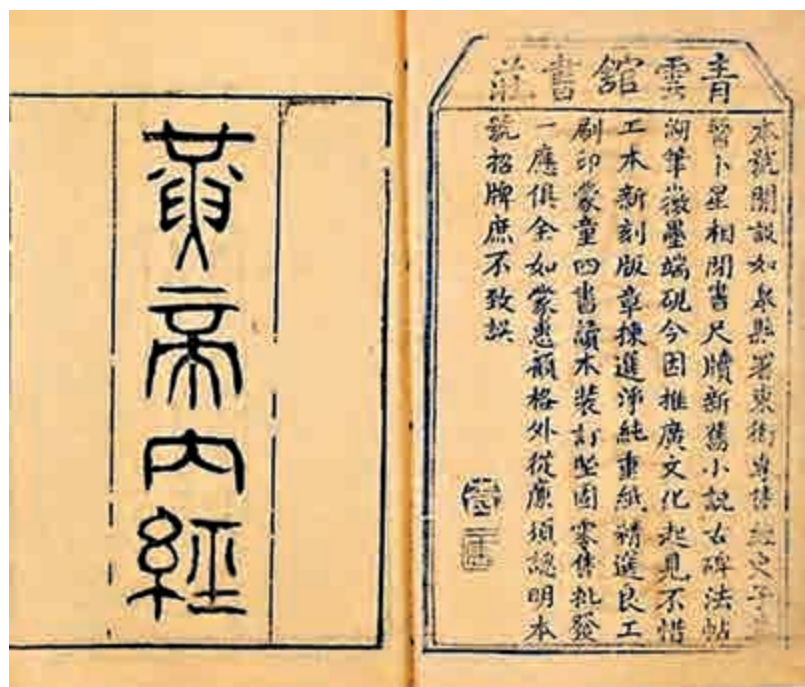 青雲館書莊
本號開設如皋縣署東街專售經史子集
醫卜星相閒書尺牘新舊小說古碑法帖
湖筆徽墨端硯今因推廣文化起見不惜
工本新刻版章揀選淨純重紙精選良工
刷印蒙童四書讀本裝訂坚固零售批發
一應俱全如蒙惠顧格外從廉須認明本
號招牌庶不致誤
黃帝內經